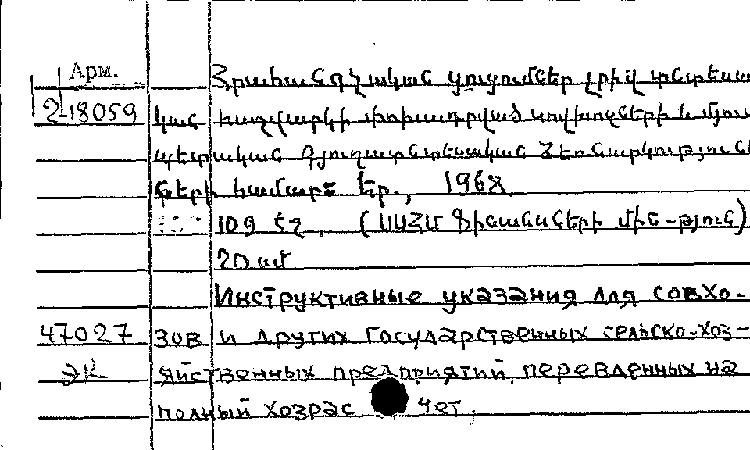 Арм.
Հրահանգչական ցուցումներ լրիվ տնտեսա
2-18059 կան հաշվարկի փոխադրված սովխոզների և մյուս
պետական գյուղատնտեսական ձեռնարկություն
ների համար: Եր., 1968
109 էջ. (ՍՍՀՄ Ֆինանսների մին-թյուն)
Инструктивные указания для совхо-
47027 зов и других государственных сельско-хоз-
яйственных предприятий, переведенных на
полный хозрас чет.